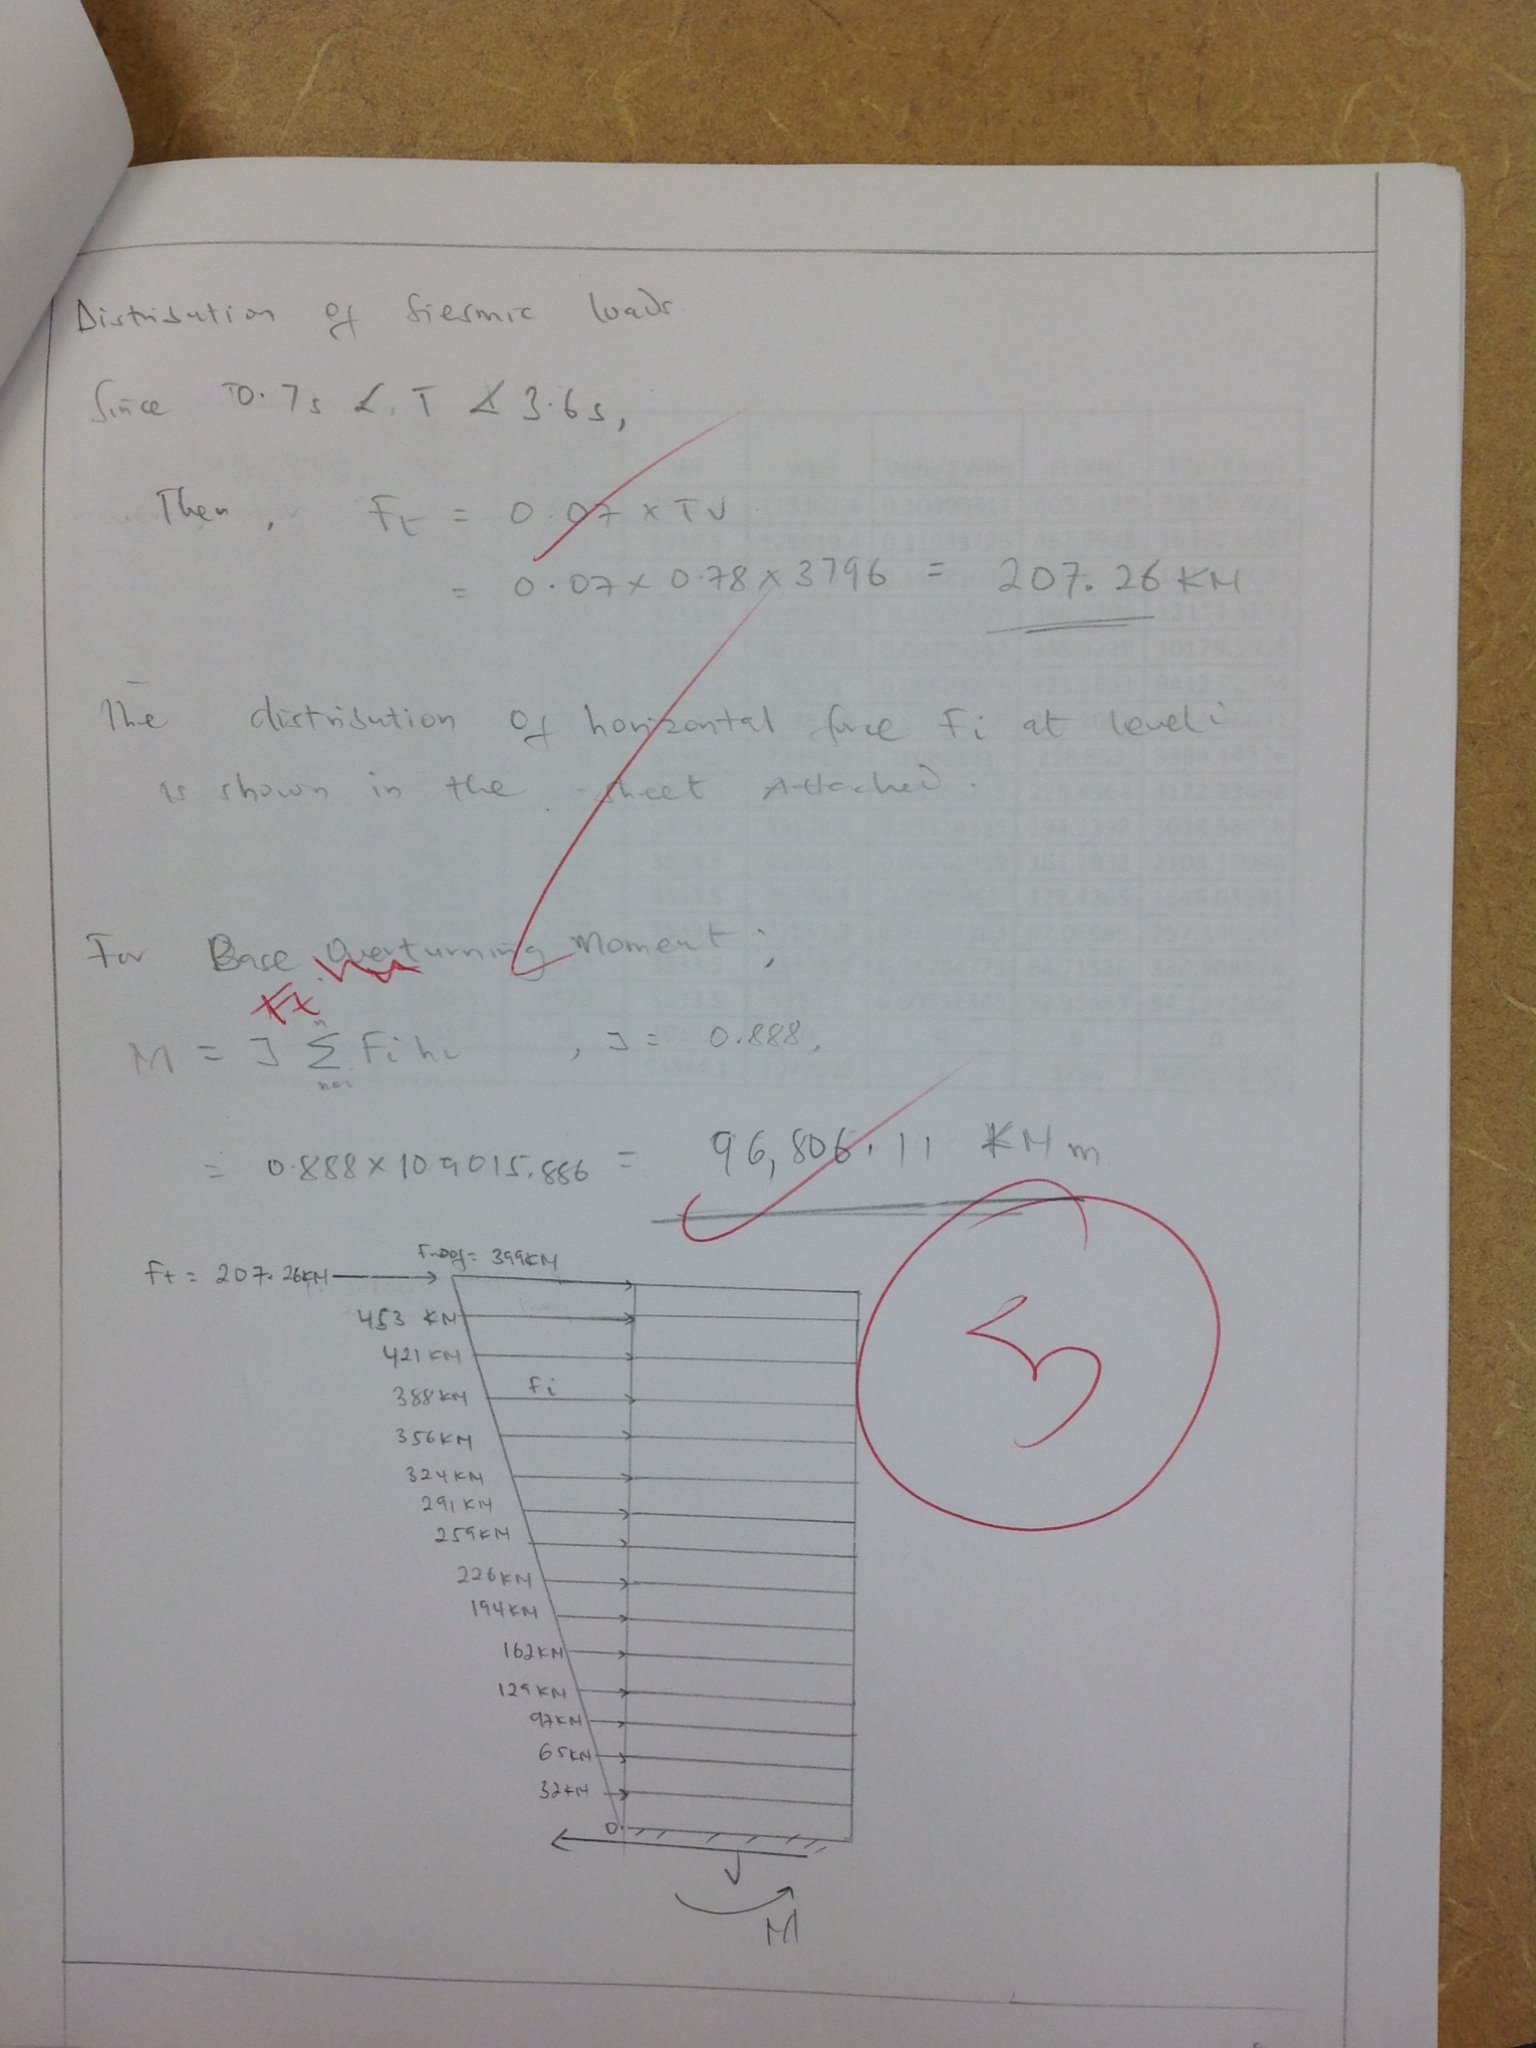 Distribution of Siesmic loads
Since 0.7s < T < 3.6s,
Then, Ft = 0.07 x TV
= 0.07 x 0.78 x 3796 = 207.26 KN
The distribution of horizontal force Fi at level i
is shown in the sheet Attached.
For Base Overturning Moment;
Ft
M = J Σ Fi hi , J = 0.888,
= 0.888 x 109015.886 = 96,806.11 KNm
Froof = 399KN
Ft = 207.26KN
453 KN
421 KN
388KN Fi
356KN
324KN
291 KN
259KN
226KN
194KN
162KN
129KN
97KN
65KN
32KN
0
V
M
3